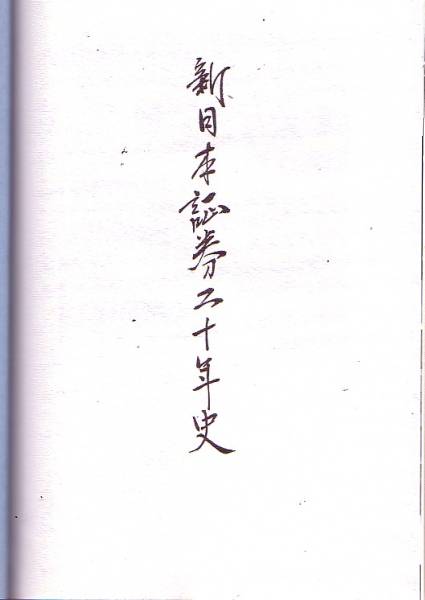 新日本証券二十年史